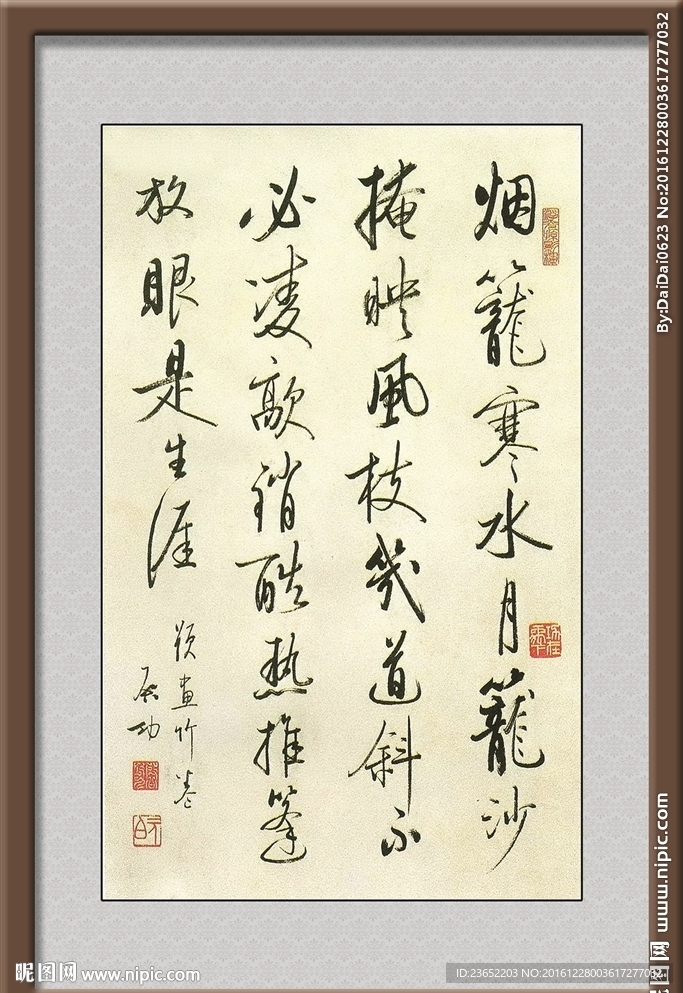 烟籠寒水月籠沙
掩映風枝幾道斜不
必凌歊銷酷热推篷
放眼是生涯
題畫竹卷
启功
By:DaiDai0623 No:20161228003617277032
昵图网 www.nipic.com
昵图网 www.nipic.com
ID:23652203 NO:20161228003617277032